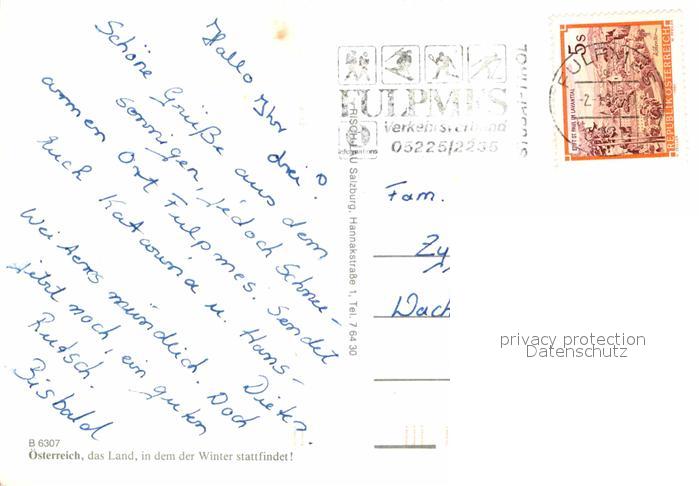 Hallo Ihr drei!
Schöne Grüße aus dem
sonnigen, jedoch Schnee-
armen Ort Fulpmes. Sendet
Euch Katarina u. Hans-
Dieter.
Weiteres mündlich. Doch
jetzt noch ein guten
Rutsch.
Bisbald
B 6307
Österreich, das Land, in dem der Winter stattfindet!
RISCH-LAU Salzburg, Hannakstraße 1, Tel. 7 64 30
FULPMES
Verkehrsverband
Informations
05225/2235
STUBAI/TIROL
FULPMES
5s
STIFT ST. PAUL IM LAVANTTAL
REPUBLIK ÖSTERREICH
Fam.
Zy
Dach
privacy protection
Datenschutz